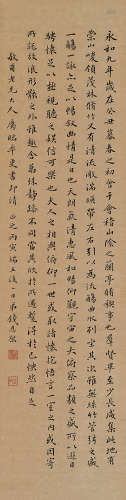 永和九年歲在癸丑暮春之初會于會稽山陰之蘭亭脩禊事也羣賢畢至少長咸集此地有
崇山峻領茂林脩竹又有清流激湍暎帶左右引以為流觴曲水列坐其次雖無絲竹管弦之盛
一觴一詠亦足以暢敘幽情是日也天朗氣清惠風和暢仰觀宇宙之大俯察品類之盛所以遊目
騁懷足以極視聽之娛信可樂也夫人之相與俯仰一世或取諸懷抱悟言一室之內或因寄
所託放浪形骸之外雖趣舍萬殊靜躁不同當其欣於所遇暫得於己怏然自足
老兄大人屬 書即請 正之丙寅端五後一日弟錢